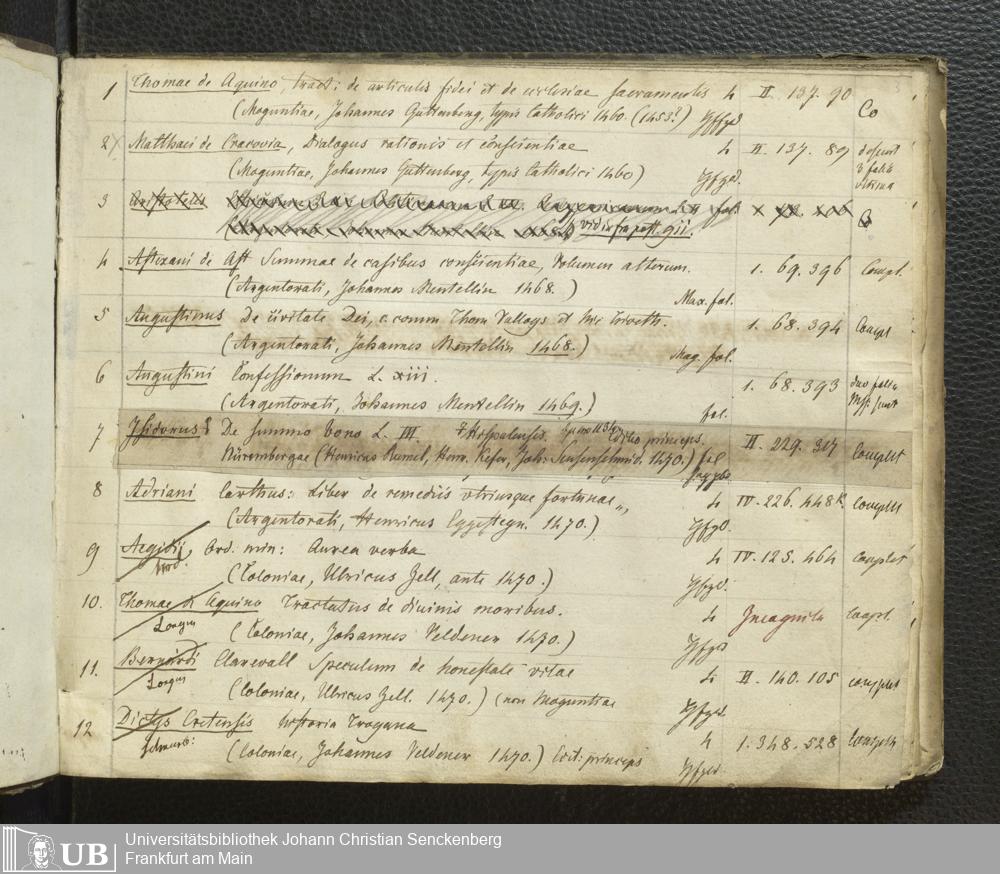 1 Thomae de Aquino, tract: de articulis fidei et de ecclesiae sacramentis 4 II. 137. 90 Co
(Moguntiae, Johannes Guttenberg, typis Catholici 1460. (1453?)
2 Matthaei de Cracovia, Dialogus rationis et conscientiae 4 II. 137. 89
(Moguntiae, Johannes Guttenberg, typis Catholici 1460)
3 Aristotelis
4 Astexani de Ast Summae de casibus conscientiae, Volumen alterum. 1. 69. 396 Compl.
(Argentorati, Johannes Mentellin 1468.) Max. fol.
5 Augustinus De civitate Dei, c. comm Thom Valloys et Nic Triveth. 1. 68. 394 Compl
(Argentorati, Johannes Mentellin 1468.) Mag. fol.
6 Augustini Confessionum L. xiii. 1. 68. 393 duo folia
(Argentorati, Johannes Mentellin 1469.) fol. Mss. sunt
7 Isidorus De summo bono L. III Hispalensis. Editio princeps. II. 229. 317 complet
Nürembergae (Henricus Rumel, Henr. Kefer, Joh: Sensenschmid. 1470.) fol
8 Adriani Carthus: Liber de remediis utriusque fortunae 4 IV. 226. 448 complet
(Argentorati, Henricus Eggesteyn. 1470.)
9 Aegidii, Ord. min: Aurea verba 4 IV. 125. 464 complet
(Coloniae, Ulricus Zell, ante 1470.)
10. Thomae d Aquino Tractatus de divinis moribus. 4 Incognita compl.
(Coloniae, Johannes Veldener 1470.)
11. Bernardi Clarevall Speculum de honestate vitae 4 II. 140. 105 complet
(Coloniae, Ulricus Zell. 1470.) (non Moguntiae
12 Dictys Cretensis historia Troyana 4 1. 348. 528 complet
(Coloniae, Johannes Veldener 1470.) Edit: princeps
UB
Universitätsbibliothek Johann Christian Senckenberg
Frankfurt am Main